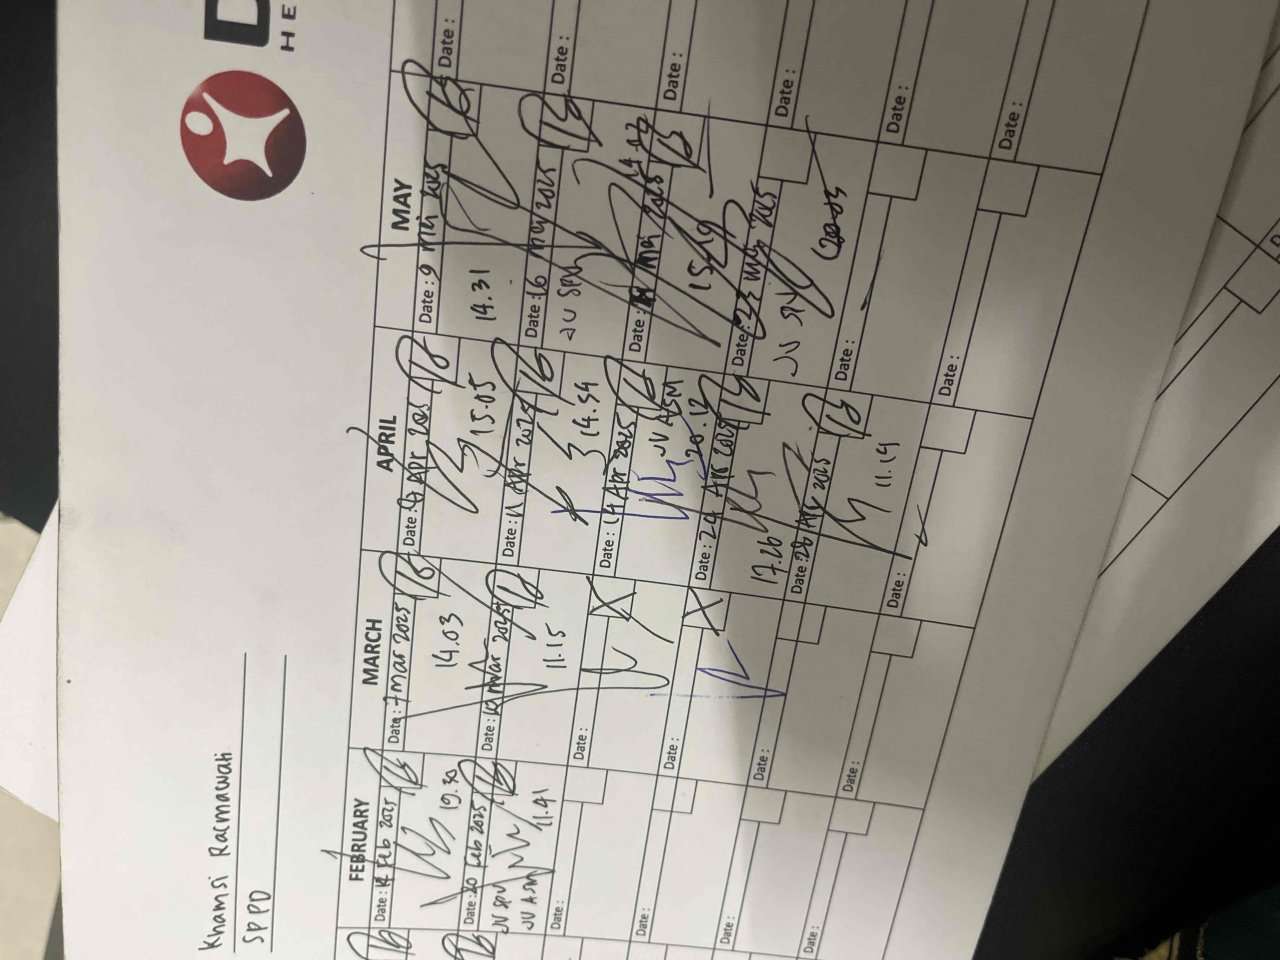 D
HE
Khamsi Racmawati
SPPD
FEBRUARY
MARCH
APRIL
MAY
Date: Feb 2025
19.30
Date: 20 Feb 2025
JV SPV
JV ASM
11.41
Date:
Date:
Date:
Date:
Date: 7 Mar 2025
14.03
Date: Mar 2025
11.15
Date:
Date:
Date:
Date:
Date: Apr 2025
15.05
Date: 11 Apr 2025
14.54
Date: 14 Apr 2025
JV ASM
20.12
Date: 24 Apr 2025
17.26
Date: 28 2025
11.19
Date:
Date: 9 Mei 2025
14.31
Date: 16 May 2025
JV SPV
Date: Mei 2025
15.19
Date: 23 May 2025
JV SPV
Date:
Date:
Date:
Date:
Date:
Date:
Date:
Date: